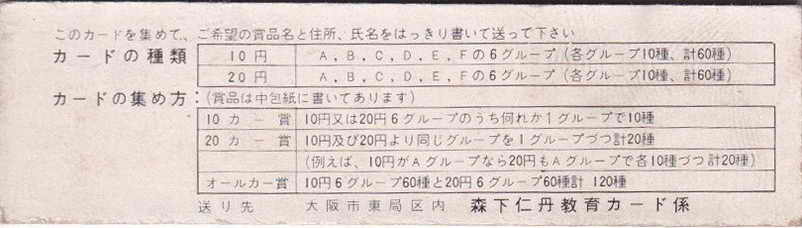 このカードを集めて、ご希望の賞品名と住所、氏名をはっきり書いて送って下さい
カードの種類 10円 A，B，C，D，E，Fの6グループ（各グループ10種、計60種）
20円 A，B，C，D，E，Fの6グループ（各グループ10種、計60種）
カードの集め方：（賞品は中包紙に書いてあります）
10カー賞 10円又は20円6グループのうち何れか1グループで10種
20カー賞 10円及び20円より同じグループを1グループづつ計20種
（例えば、10円がAグループなら20円もAグループで各10種づつ計20種）
オールカー賞 10円6グループ60種と20円6グループ60種計 120種
送り先 大阪市東局区内 森下仁丹教育カード係